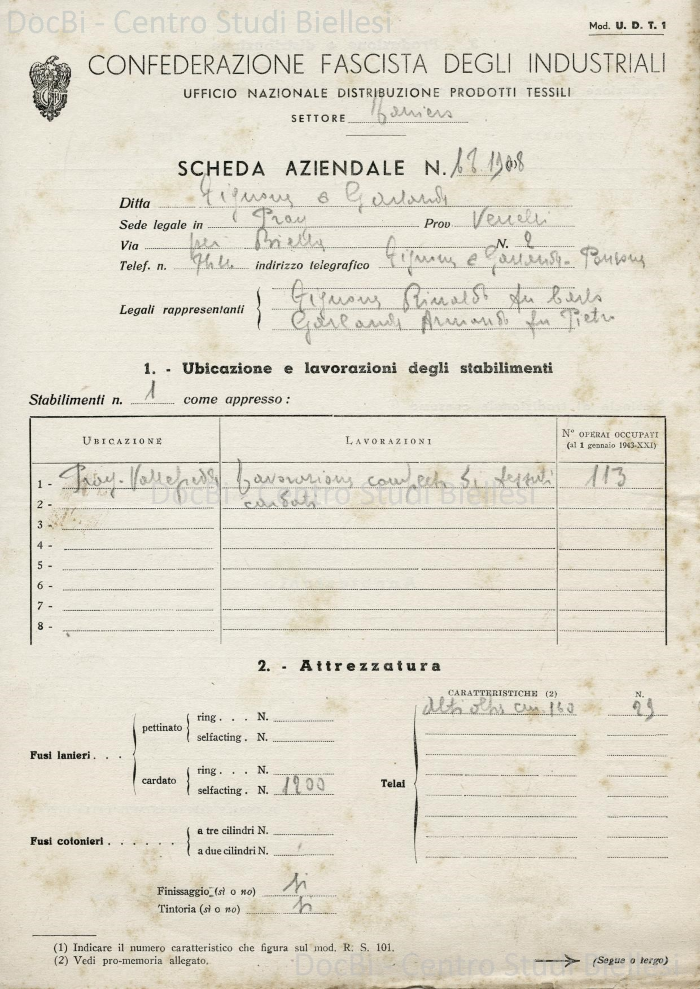 DocBi - Centro Studi Biellesi
Mod. U. D. T. 1
CONFEDERAZIONE FASCISTA DEGLI INDUSTRIALI
UFFICIO NAZIONALE DISTRIBUZIONE PRODOTTI TESSILI
SETTORE Laniero
SCHEDA AZIENDALE N. (1)
Ditta Tignone e Garlanda
Sede legale in Pray Prov Vercelli
Via per Biella N. 2
Telef. n. indirizzo telegrafico Tignone e Garlanda - Ponzone
Legali rappresentanti
Tignone Rinaldo fu Carlo
Garlanda Armando fu Pietro
1. - Ubicazione e lavorazioni degli stabilimenti
Stabilimenti n. 1 come appresso :
UBICAZIONE LAVORAZIONI N° OPERAI OCCUPATI
(al 1 gennaio 1943-XXI)
1 - Pray - Vallefredda Lavorazione completa di tessuti 113
DocBi - Centro Studi Biellesi
2 - cardati
3 -
4 -
5 -
6 -
7 -
8 -
2. - Attrezzatura
Fusi lanieri . . .
pettinato
ring . . . N.
selfacting . N.
cardato
ring . . . N.
selfacting . N. 1200
Fusi cotonieri . . . . . .
a tre cilindri N.
a due cilindri N.
Telai
CARATTERISTICHE (2) N.
Alti oltre cm 160 29
Finissaggio (sì o no) si
Tintoria (sì o no) si
(1) Indicare il numero caratteristico che figura sul mod. R. S. 101.
(2) Vedi pro-memoria allegato.
(Segue a tergo)
DocBi - Centro Studi Biellesi